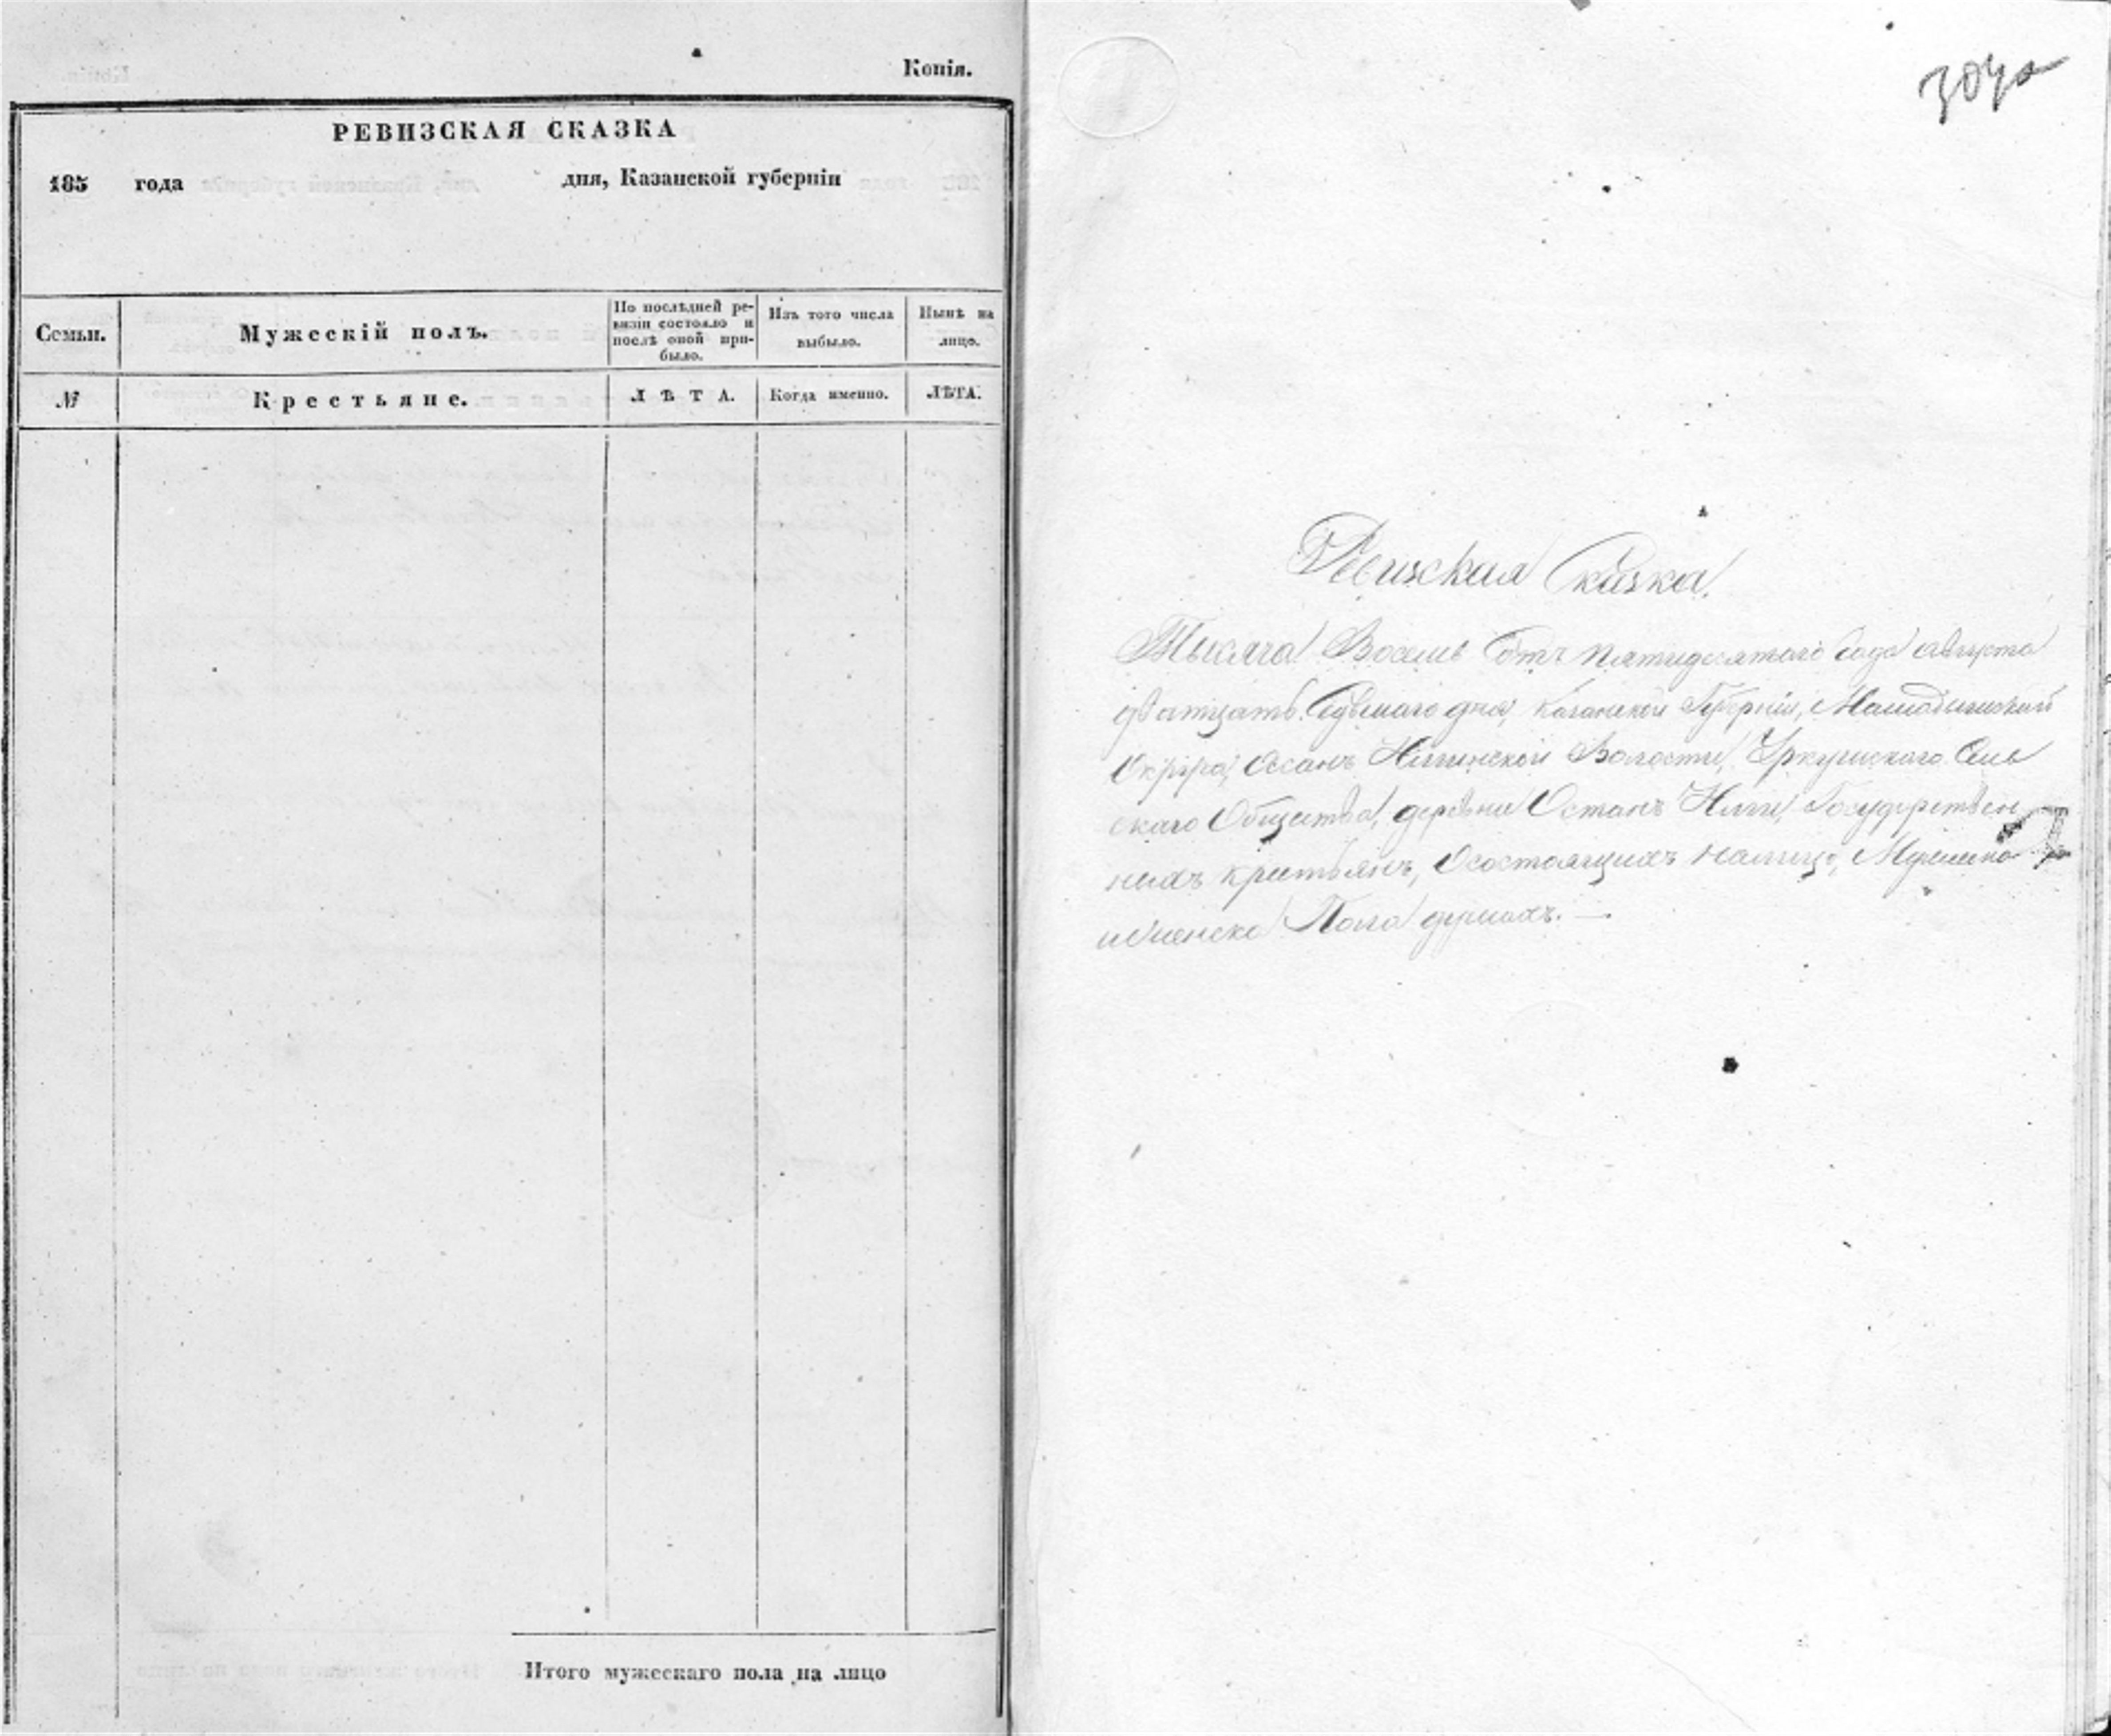 Копія.
РЕВИЗСКАЯ СКАЗКА
185 года дня, Казанской губерніи
Семьи.
Мужескій полъ.
По послѣдней ре-
визіи состояло и
послѣ оной при-
было.
Изъ того числа
выбыло.
Нынѣ на
лицо.
№
Крестьяне.
ЛѢТА.
Когда именно.
ЛѢТА.
Итого мужескаго пола на лицо
Ревизская Сказка.
Тысяча Восемь Сотъ пятидесятаго Года августа
дватцать Седьмаго дня, Казанской Губерніи, Мамадышскаго
Округа, Волости, Сель
скаго Общества, деревни Останъ Государствен
ныхъ крестьянъ, Осостоящихъ налицо, Мужеска
иженска Пола душахъ. —